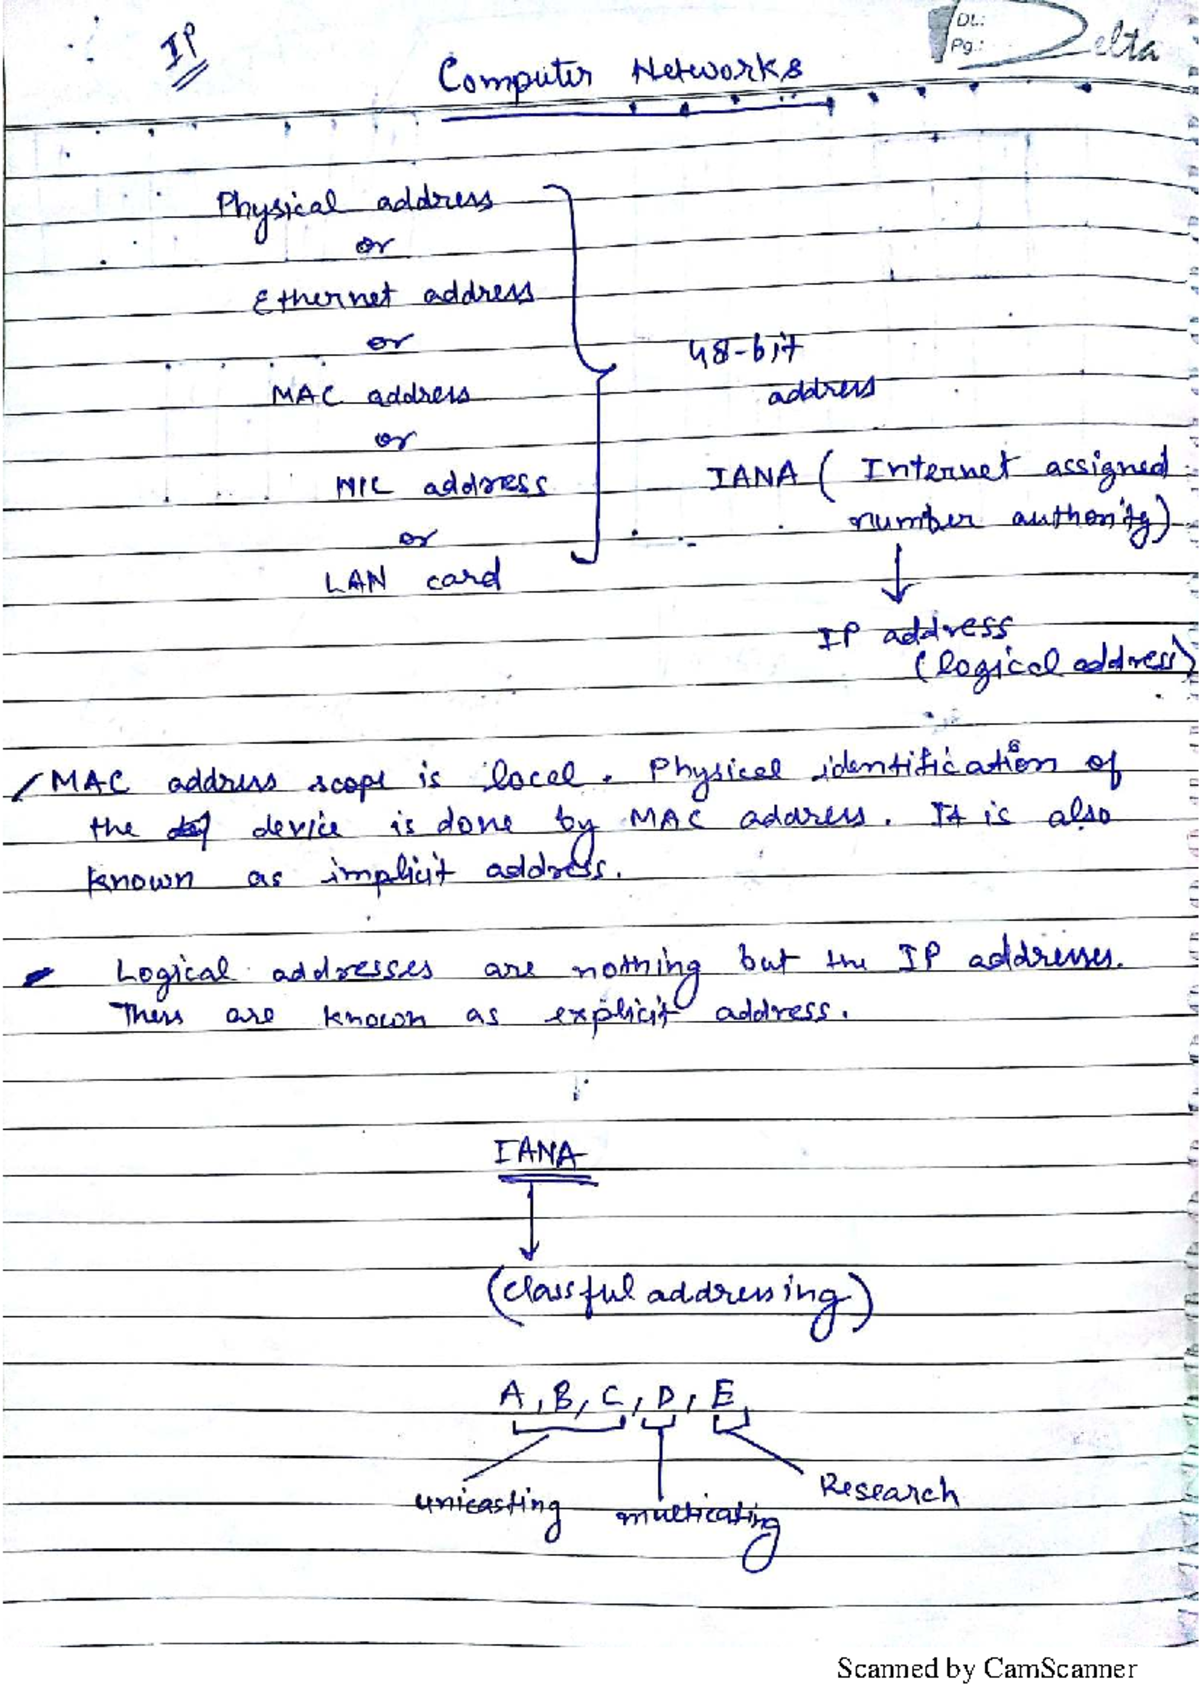 IP
Dt.:
Pg.:
Delta
Computer Networks
Physical address
or
Ethernet address
or
MAC address
or
NIC address
or
LAN card
48-bit
address
IANA ( Internet assigned
number authority)
IP address
(logical address)
MAC address scope is local. Physical identification of
the device is done by MAC address. It is also
known as implicit address.
Logical addresses are nothing but the IP addresses.
Thers are known as explicit address.
IANA
(classful addressing)
A, B, C, D, E,
unicasting
multicating
Research
Scanned by CamScanner